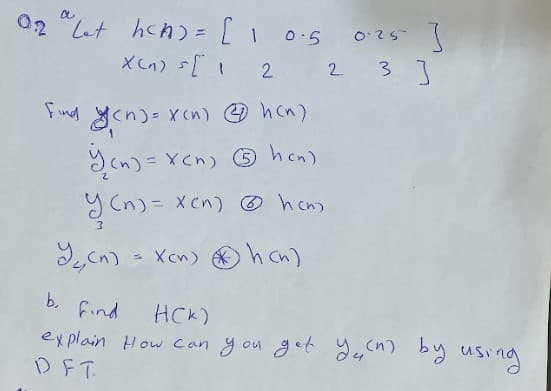 Q.2 a Let h(n) = [ 1 0.5 0.25 ]
x(n) = [ 1 2 2 3 ]
Find y₁(n) = x(n) ④ h(n)
y₂(n) = x(n) ⑤ h(n)
y₃(n) = x(n) ⑥ h(n)
y₄(n) = x(n) ⊛ h(n)
b. Find H(k)
explain How can you get y₄(n) by using
DFT.